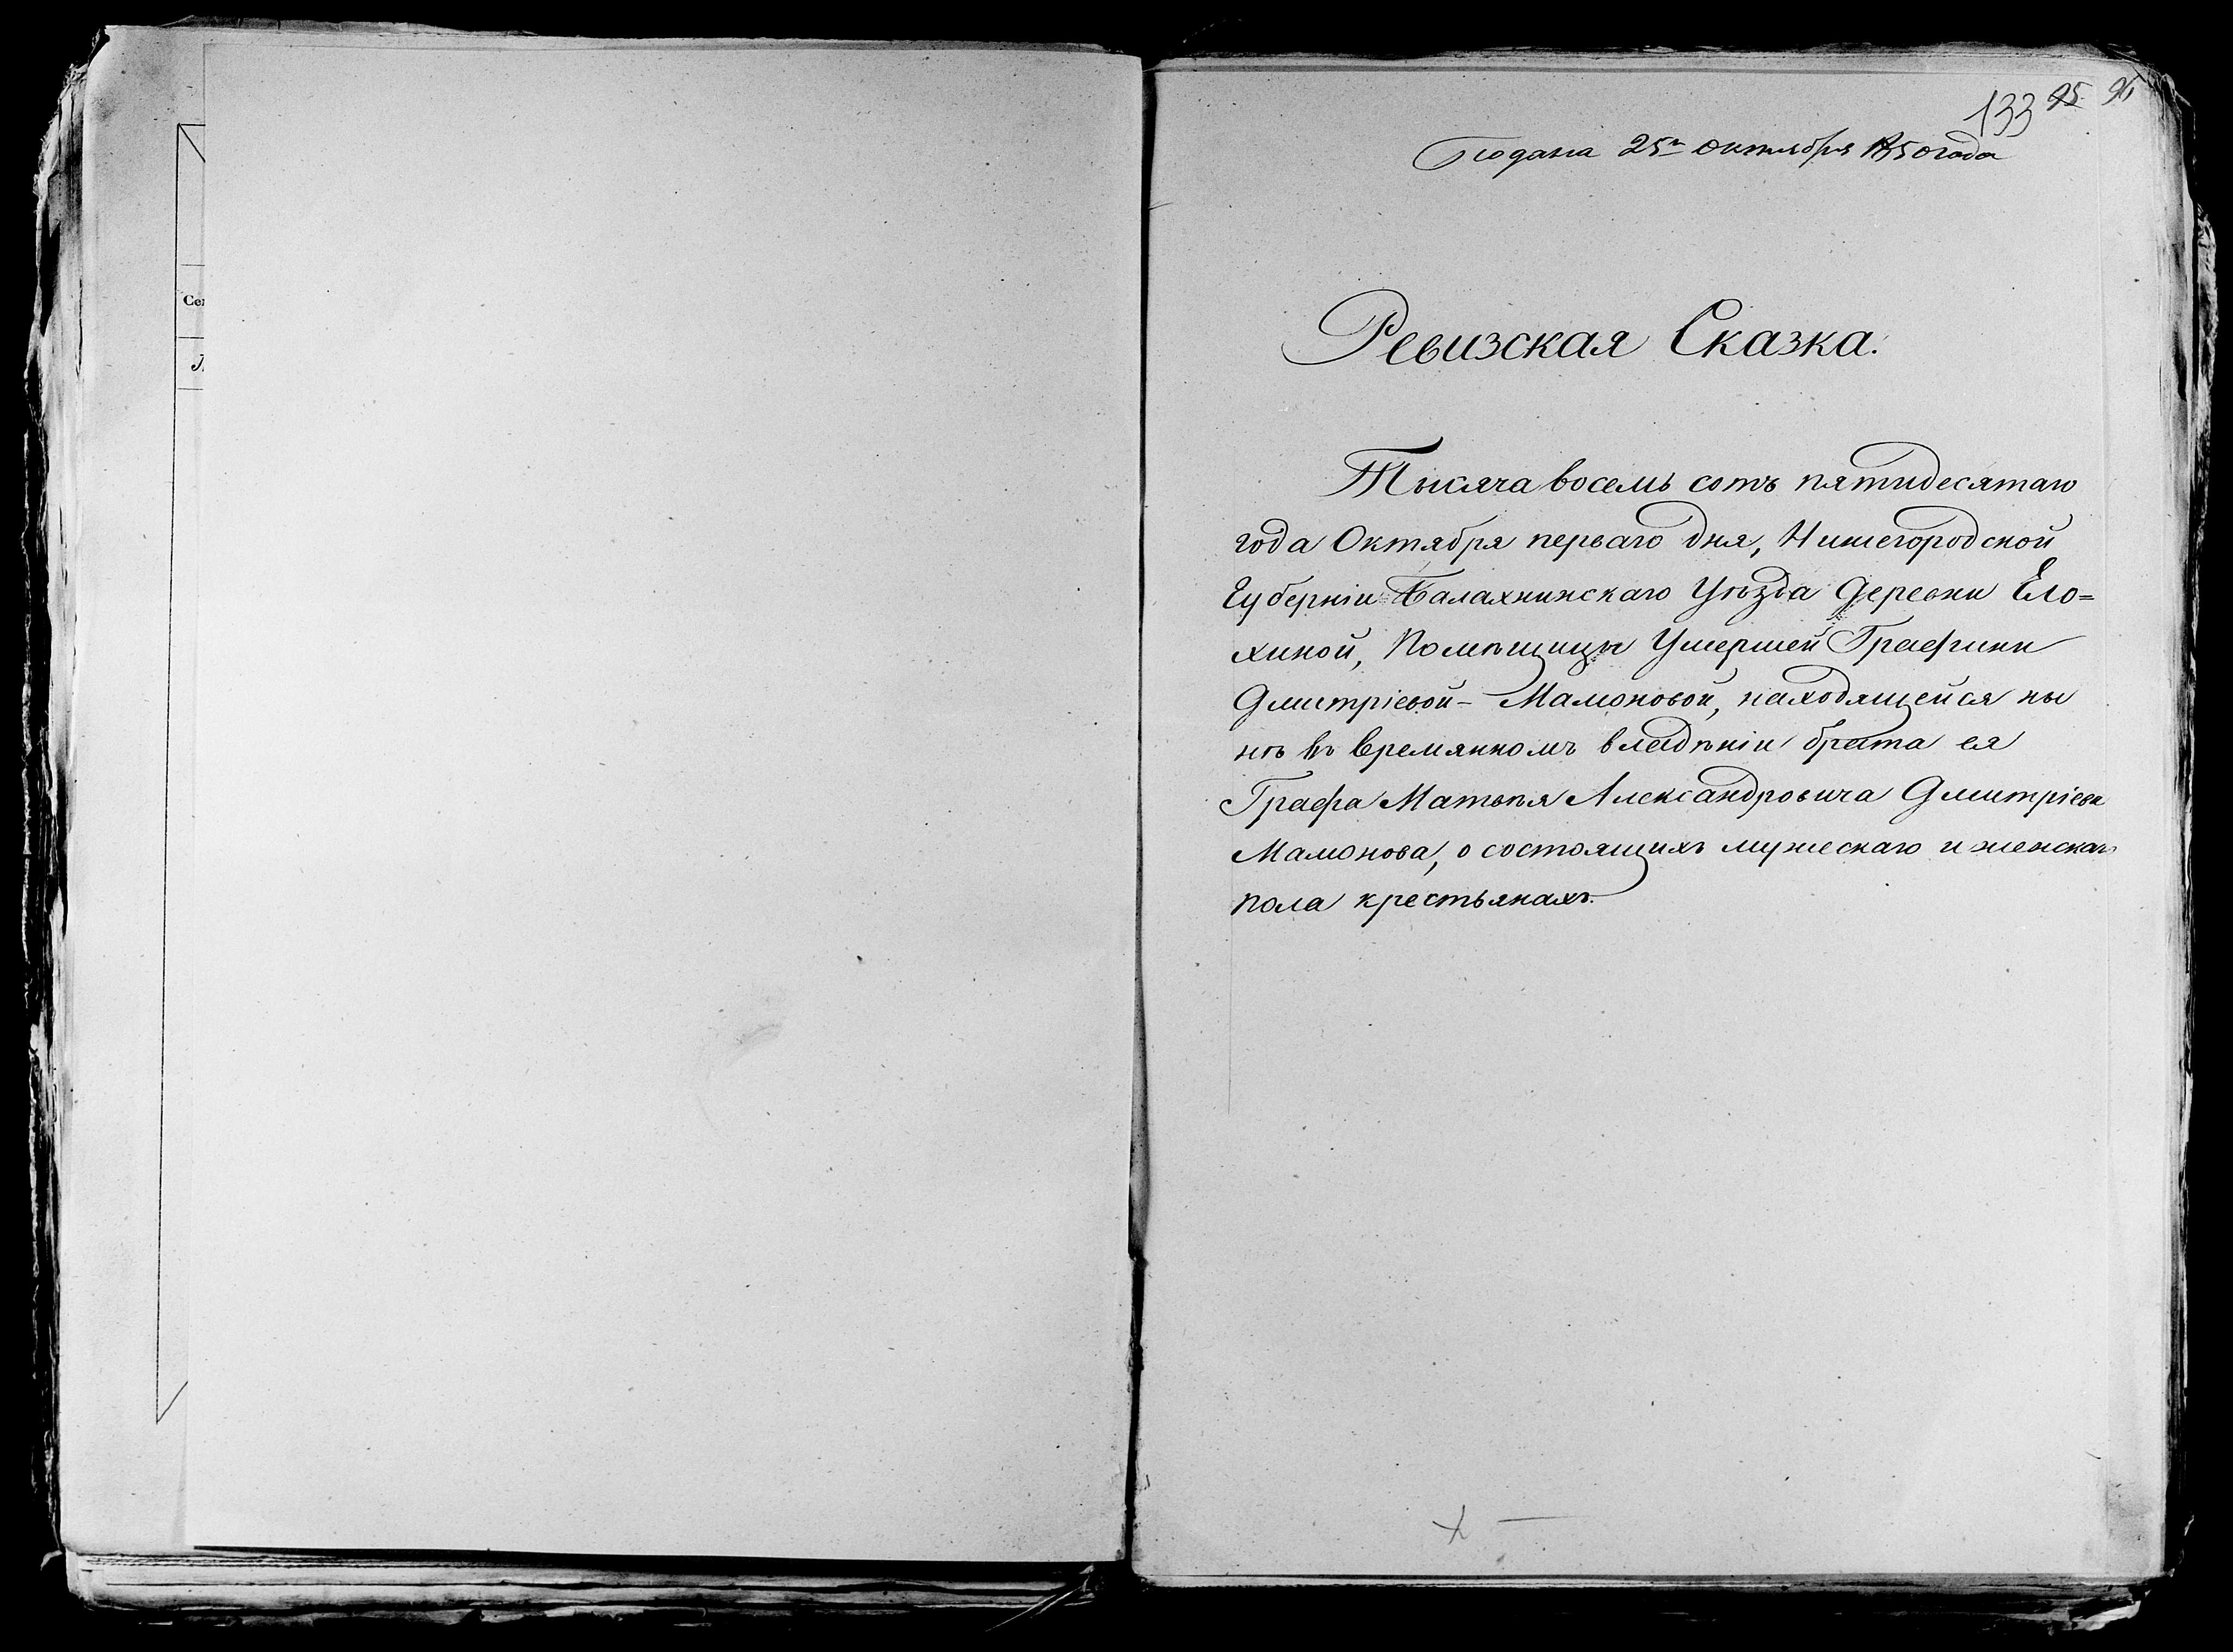 133 95 96
Подана 25го Октября 1850 года
Ревизская Сказка.
Тысяча восемь сотъ пятидесятаго
года Октября перваго дня, Нижегородской
Губерніи Балахнинскаго Уѣзда Деревни Ело=
хиной, Помѣщицы Умершей Графини
Дмитріевой - Мамоновой, находящейся ны
нѣ въ времянномъ владѣніи брата ея
Графа Матвѣя Александровича Дмитріева
Мамонова, о состоящихъ мужескаго и женскаго
пола крестьянахъ.